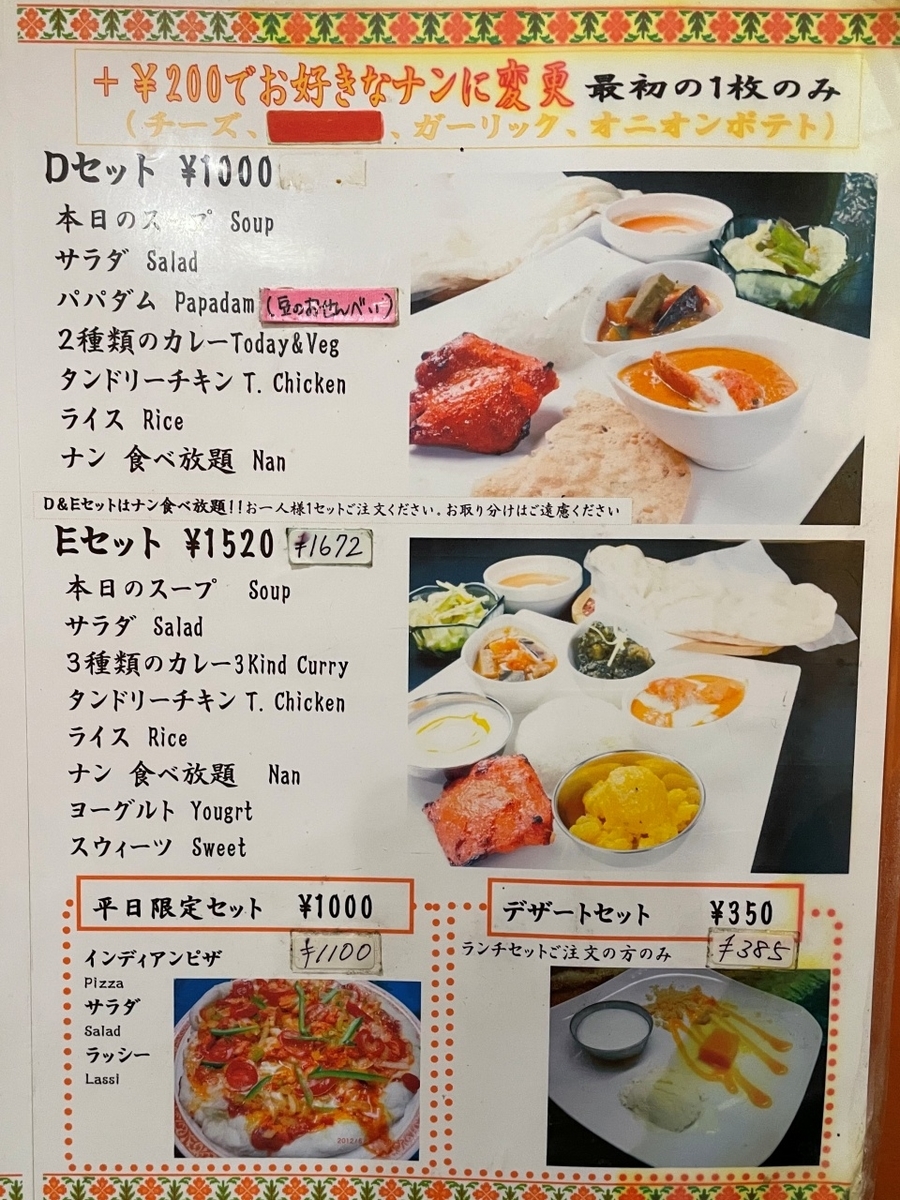 ＋￥200でお好きなナンに変更 最初の1枚のみ
(チーズ、、ガーリック、オニオンポテト)
Dセット ¥1000
本日のスープ Soup
サラダ Salad
パパダム Papadam (豆のおせんべい)
2種類のカレーToday&Veg
タンドリーチキン T. Chicken
ライス Rice
ナン 食べ放題 Nan
D&Eセットはナン食べ放題!!お一人様1セットご注文ください。お取り分けはご遠慮ください
Eセット ¥1520 ¥1672
本日のスープ Soup
サラダ Salad
3種類のカレー3Kind Curry
タンドリーチキン T. Chicken
ライス Rice
ナン 食べ放題 Nan
ヨーグルト Yougrt
スウィーツ Sweet
平日限定セット ¥1000
¥1100
インディアンピザ
Pizza
サラダ
Salad
ラッシー
Lassi
デザートセット ¥350
ランチセットご注文の方のみ ¥385